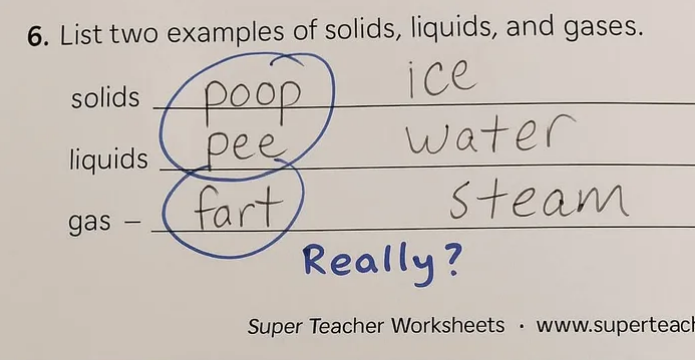 6. List two examples of solids, liquids, and gases.
solids poop ice
liquids pee water
gas – fart steam
Really?
Super Teacher Worksheets · www.superteach